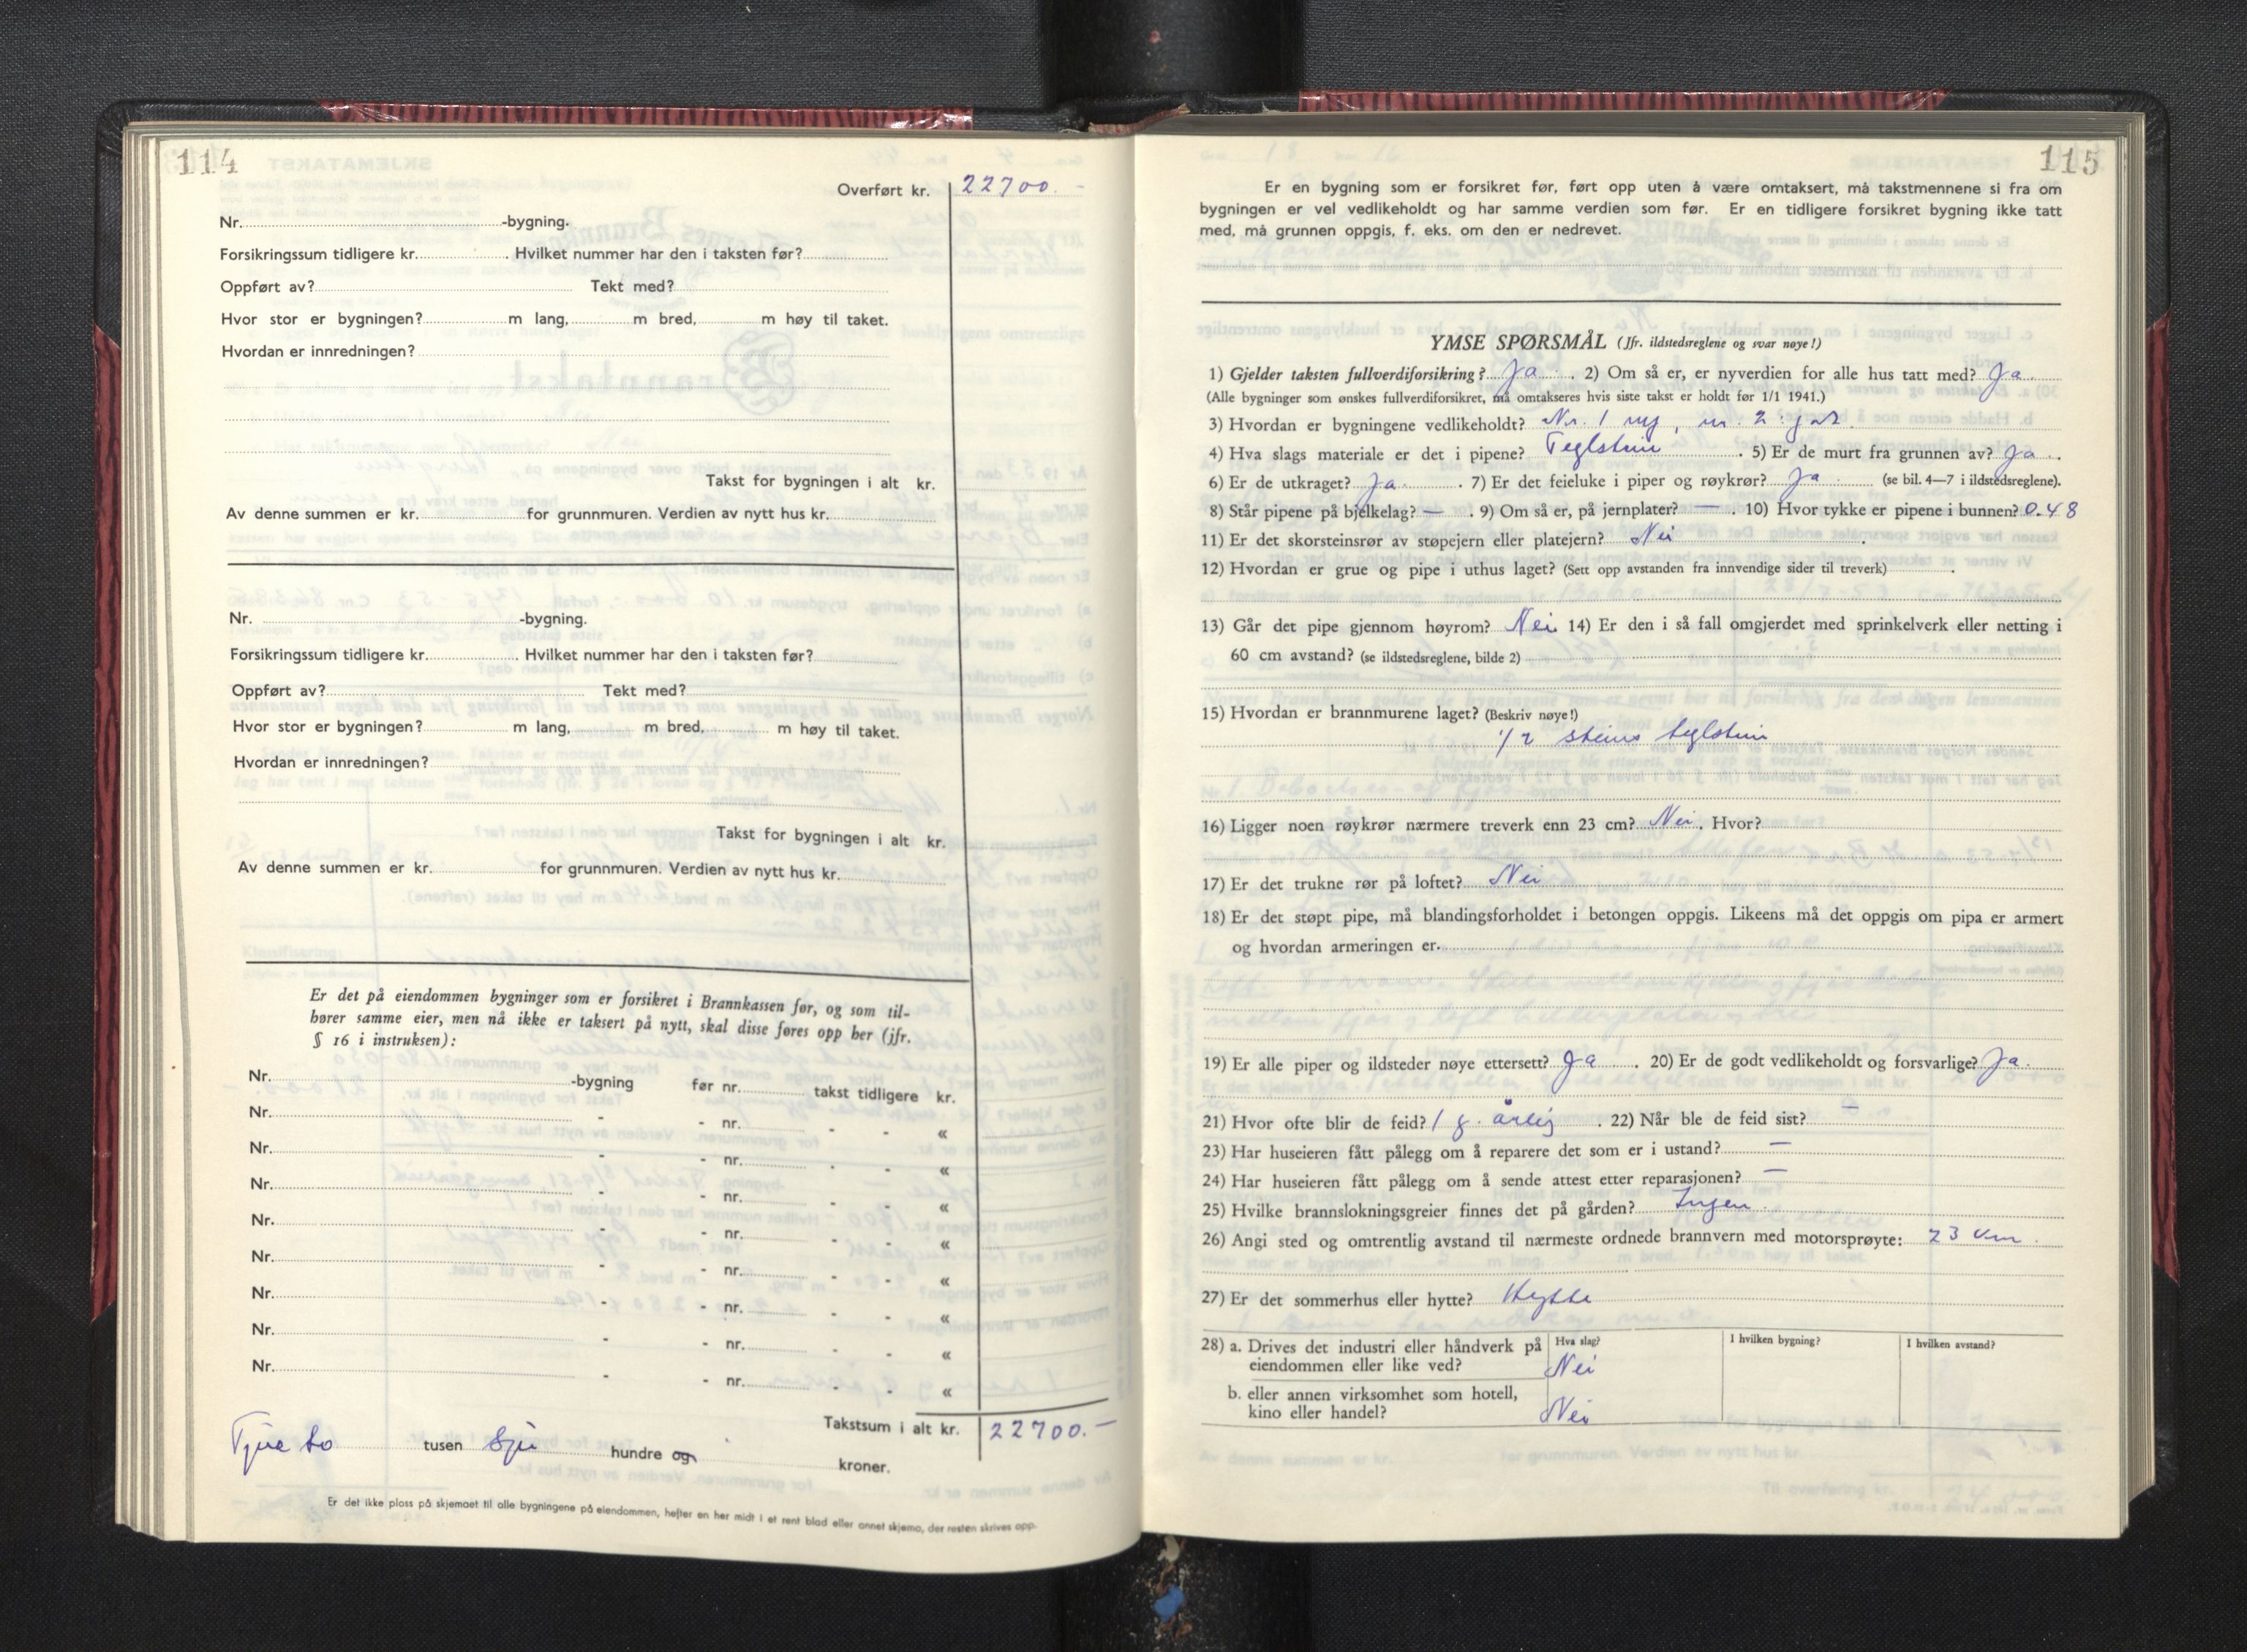 114
Overført kr. 22700.-
Nr. -bygning.
Forsikringssum tidligere kr. . Hvilket nummer har den i taksten før?
Oppført av? Tekt med?
Hvor stor er bygningen? m lang, m bred, m høy til taket.
Hvordan er innredningen?
Takst for bygningen i alt kr.
Av denne summen er kr. for grunnmuren. Verdien av nytt hus kr.
Nr. -bygning.
Forsikringssum tidligere kr. . Hvilket nummer har den i taksten før?
Oppført av? Tekt med?
Hvor stor er bygningen? m lang, m bred, m høy til taket.
Hvordan er innredningen?
Takst for bygningen i alt kr.
Av denne summen er kr. for grunnmuren. Verdien av nytt hus kr.
Er det på eiendommen bygninger som er forsikret i Brannkassen før, og som til-
hører samme eier, men nå ikke er taksert på nytt, skal disse føres opp her (jfr.
§ 16 i instruksen):
Nr. -bygning før nr. takst tidligere kr.
Nr. - - nr. - - «
Nr. - - nr. - - «
Nr. - - nr. - - «
Nr. - - nr. - - «
Nr. - - nr. - - «
Nr. - - nr. - - «
Nr. - - nr. - - «
Nr. - - nr. - - «
Takstsum i alt kr. 22700.-
Tjue to tusen sju hundre og kroner.
Er det ikke plass på skjemaet til alle bygningene på eiendommen, hefter en her midt i et rent blad eller annet skjema, der resten skrives opp.
115
Er en bygning som er forsikret før, ført opp uten å være omtaksert, må takstmennene si fra om
bygningen er vel vedlikeholdt og har samme verdien som før. Er en tidligere forsikret bygning ikke tatt
med, må grunnen oppgis, f. eks. om den er nedrevet.
YMSE SPØRSMÅL (Jfr. ildstedsreglene og svar nøye!)
1) Gjelder taksten fullverdiforsikring? Ja . 2) Om så er, er nyverdien for alle hus tatt med? Ja.
(Alle bygninger som ønskes fullverdiforsikret, må omtakseres hvis siste takst er holdt før 1/1 1941.)
3) Hvordan er bygningene vedlikeholdt? Nr. 1 ny, nr. 2 godt
4) Hva slags materiale er det i pipene? Teglstein . 5) Er de murt fra grunnen av? Ja .
6) Er de utkraget? Ja . 7) Er det feieluke i piper og røykrør? Ja (se bil. 4—7 i ildstedsreglene).
8) Står pipene på bjelkelag? — . 9) Om så er, på jernplater? — . 10) Hvor tykke er pipene i bunnen? 0.48
11) Er det skorsteinsrør av støpejern eller platejern? Nei .
12) Hvordan er grue og pipe i uthus laget? (Sett opp avstanden fra innvendige sider til treverk) .
13) Går det pipe gjennom høyrom? Nei 14) Er den i så fall omgjerdet med sprinkelverk eller netting i
60 cm avstand? (se ildstedsreglene, bilde 2)
15) Hvordan er brannmurene laget? (Beskriv nøye!)
1/2 steins teglstein
16) Ligger noen røykrør nærmere treverk enn 23 cm? Nei . Hvor?
17) Er det trukne rør på loftet? Nei
18) Er det støpt pipe, må blandingsforholdet i betongen oppgis. Likeens må det oppgis om pipa er armert
og hvordan armeringen er.
19) Er alle piper og ildsteder nøye ettersett? Ja . 20) Er de godt vedlikeholdt og forsvarlige? Ja.
21) Hvor ofte blir de feid? 1 g. årlig . 22) Når ble de feid sist? —
23) Har huseieren fått pålegg om å reparere det som er i ustand? —
24) Har huseieren fått pålegg om å sende attest etter reparasjonen? —
25) Hvilke brannslokningsgreier finnes det på gården? Ingen
26) Angi sted og omtrentlig avstand til nærmeste ordnede brannvern med motorsprøyte: 23 km.
27) Er det sommerhus eller hytte? Hytte
28) a. Drives det industri eller håndverk på Hva slag? I hvilken bygning? I hvilken avstand?
eiendommen eller like ved? Nei
b. eller annen virksomhet som hotell,
kino eller handel? Nei